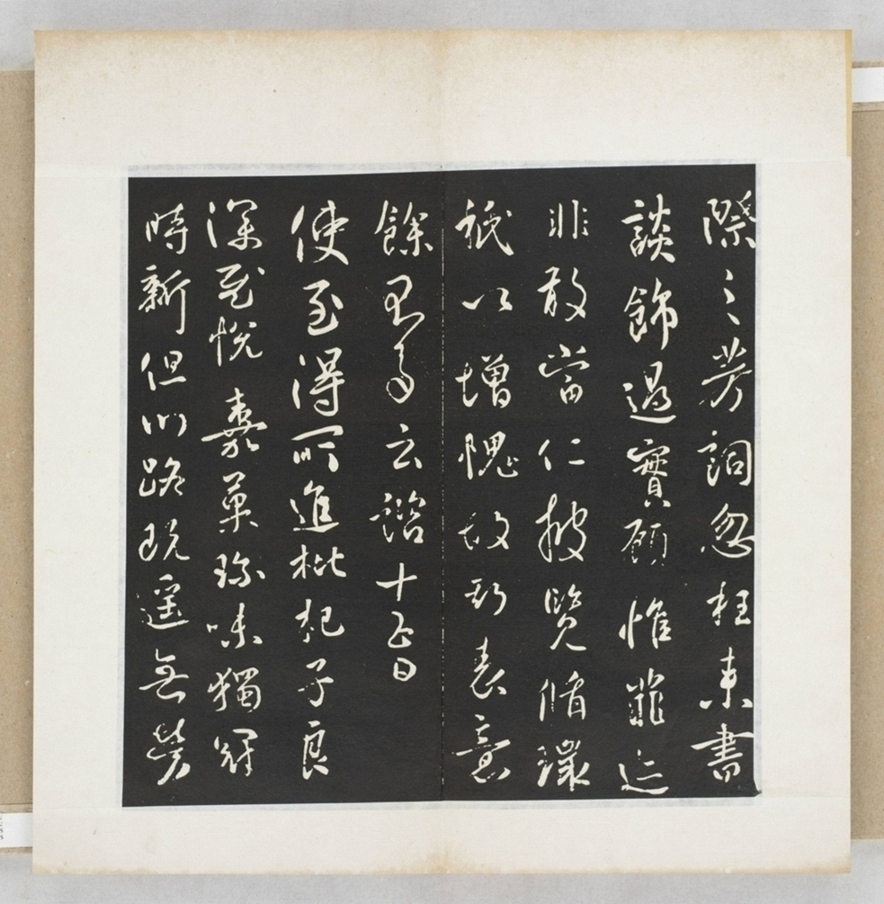 際之芳詞忽枉来書
談飾過實顧惟菲迹
非敢當仁披覽脩環
祇以增愧故斯表意
餘云諮十五日
使至得所進枇杷子良
深慰悅嘉菓珍味獨冠
時新但以路既遥無勞